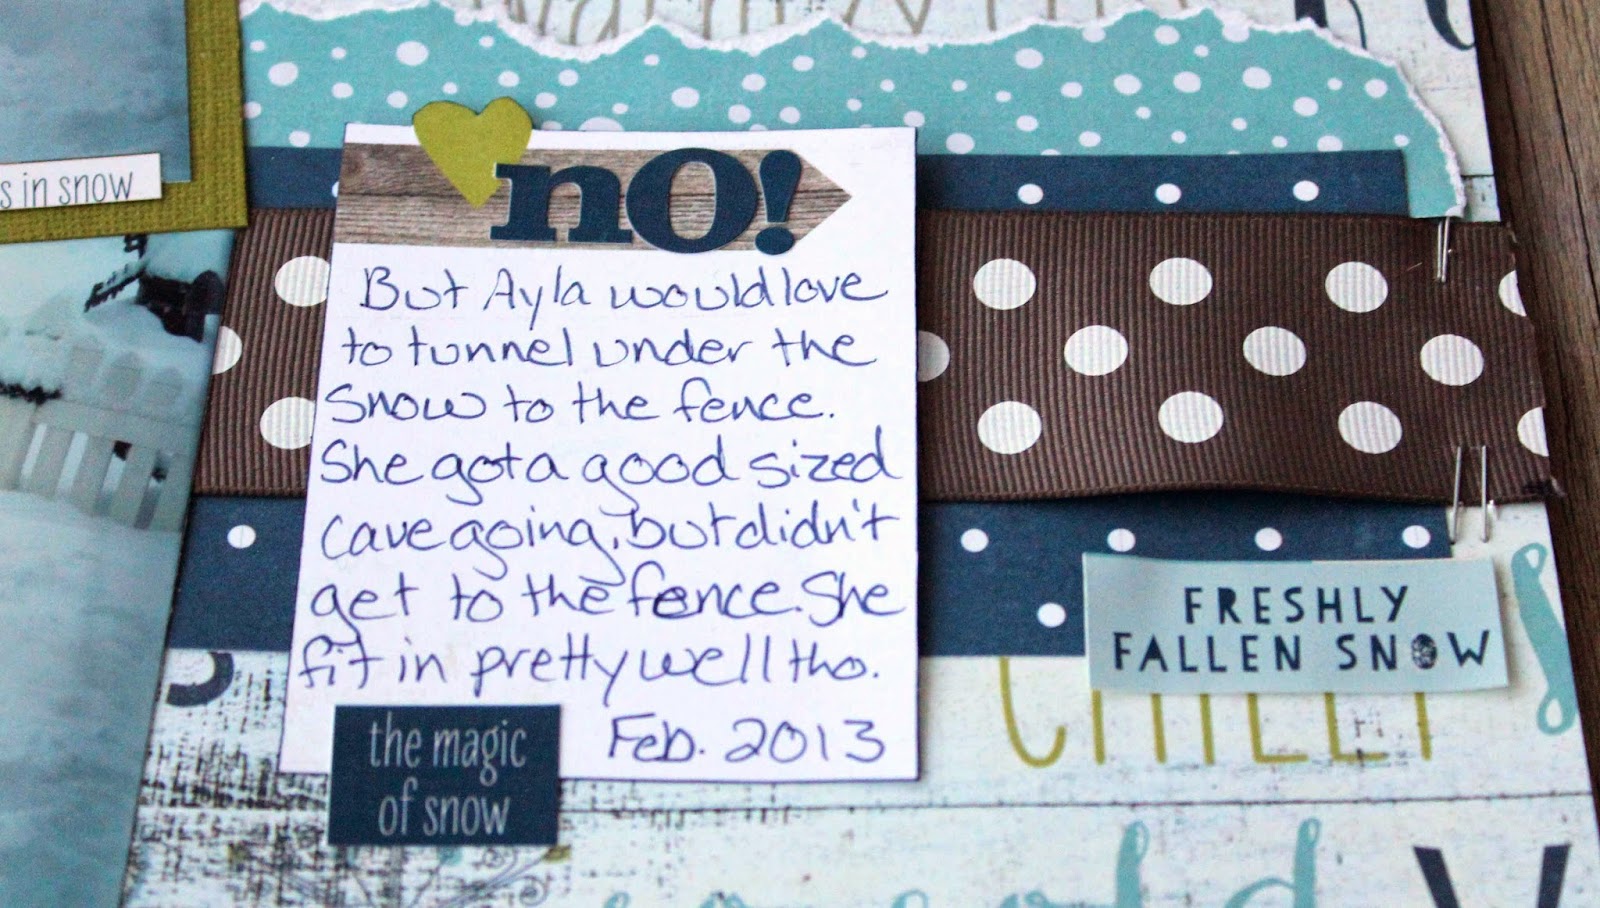 s in snow
nO!
But Ayla would love
to tunnel under the
snow to the fence.
She got a good sized
cave going, but didn't
get to the fence. She
fit in pretty well tho.
Feb. 2013
the magic
of snow
FRESHLY
FALLEN SNOW
CHILLY